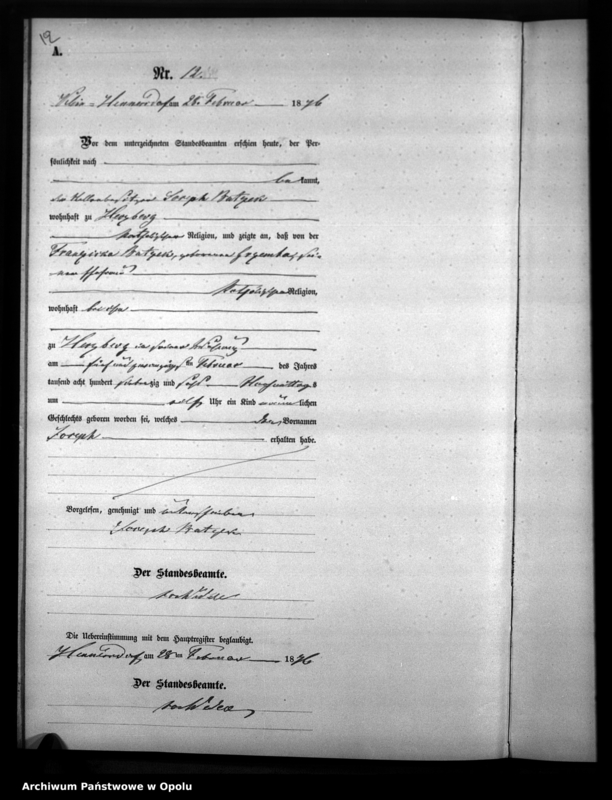 12
A.
Nr. 12.
Hennersdorf am 28 Februar 1876
Vor dem unterzeichneten Standesbeamten erschien heute, der Per-
sönlichkeit nach
be kannt,
der Joseph
wohnhaft zu Herzberg
katholischer Religion, und zeigte an, daß von der
Franziska geborenen sei-
ner Ehefrau
katholischer Religion,
wohnhaft bei ihm
zu Herzberg in seiner Wohnung
am fünf und zwanzigsten Februar des Jahres
tausend acht hundert siebenzig und sechs Nachmittags
um elf Uhr ein Kind männlichen
Geschlechts geboren worden sei, welches den Vornamen
Joseph erhalten habe.
Vorgelesen, genehmigt und unterschrieben
Joseph
Der Standesbeamte.
Die Uebereinstimmung mit dem Hauptregister beglaubigt.
Hennersdorf am 28 ten Februar 1876
Der Standesbeamte.
Archiwum Państwowe w Opolu